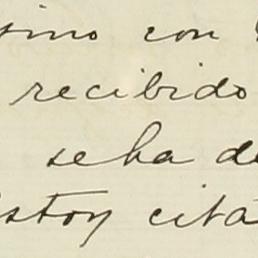 sino con
recibido
seha de
Estoy cita